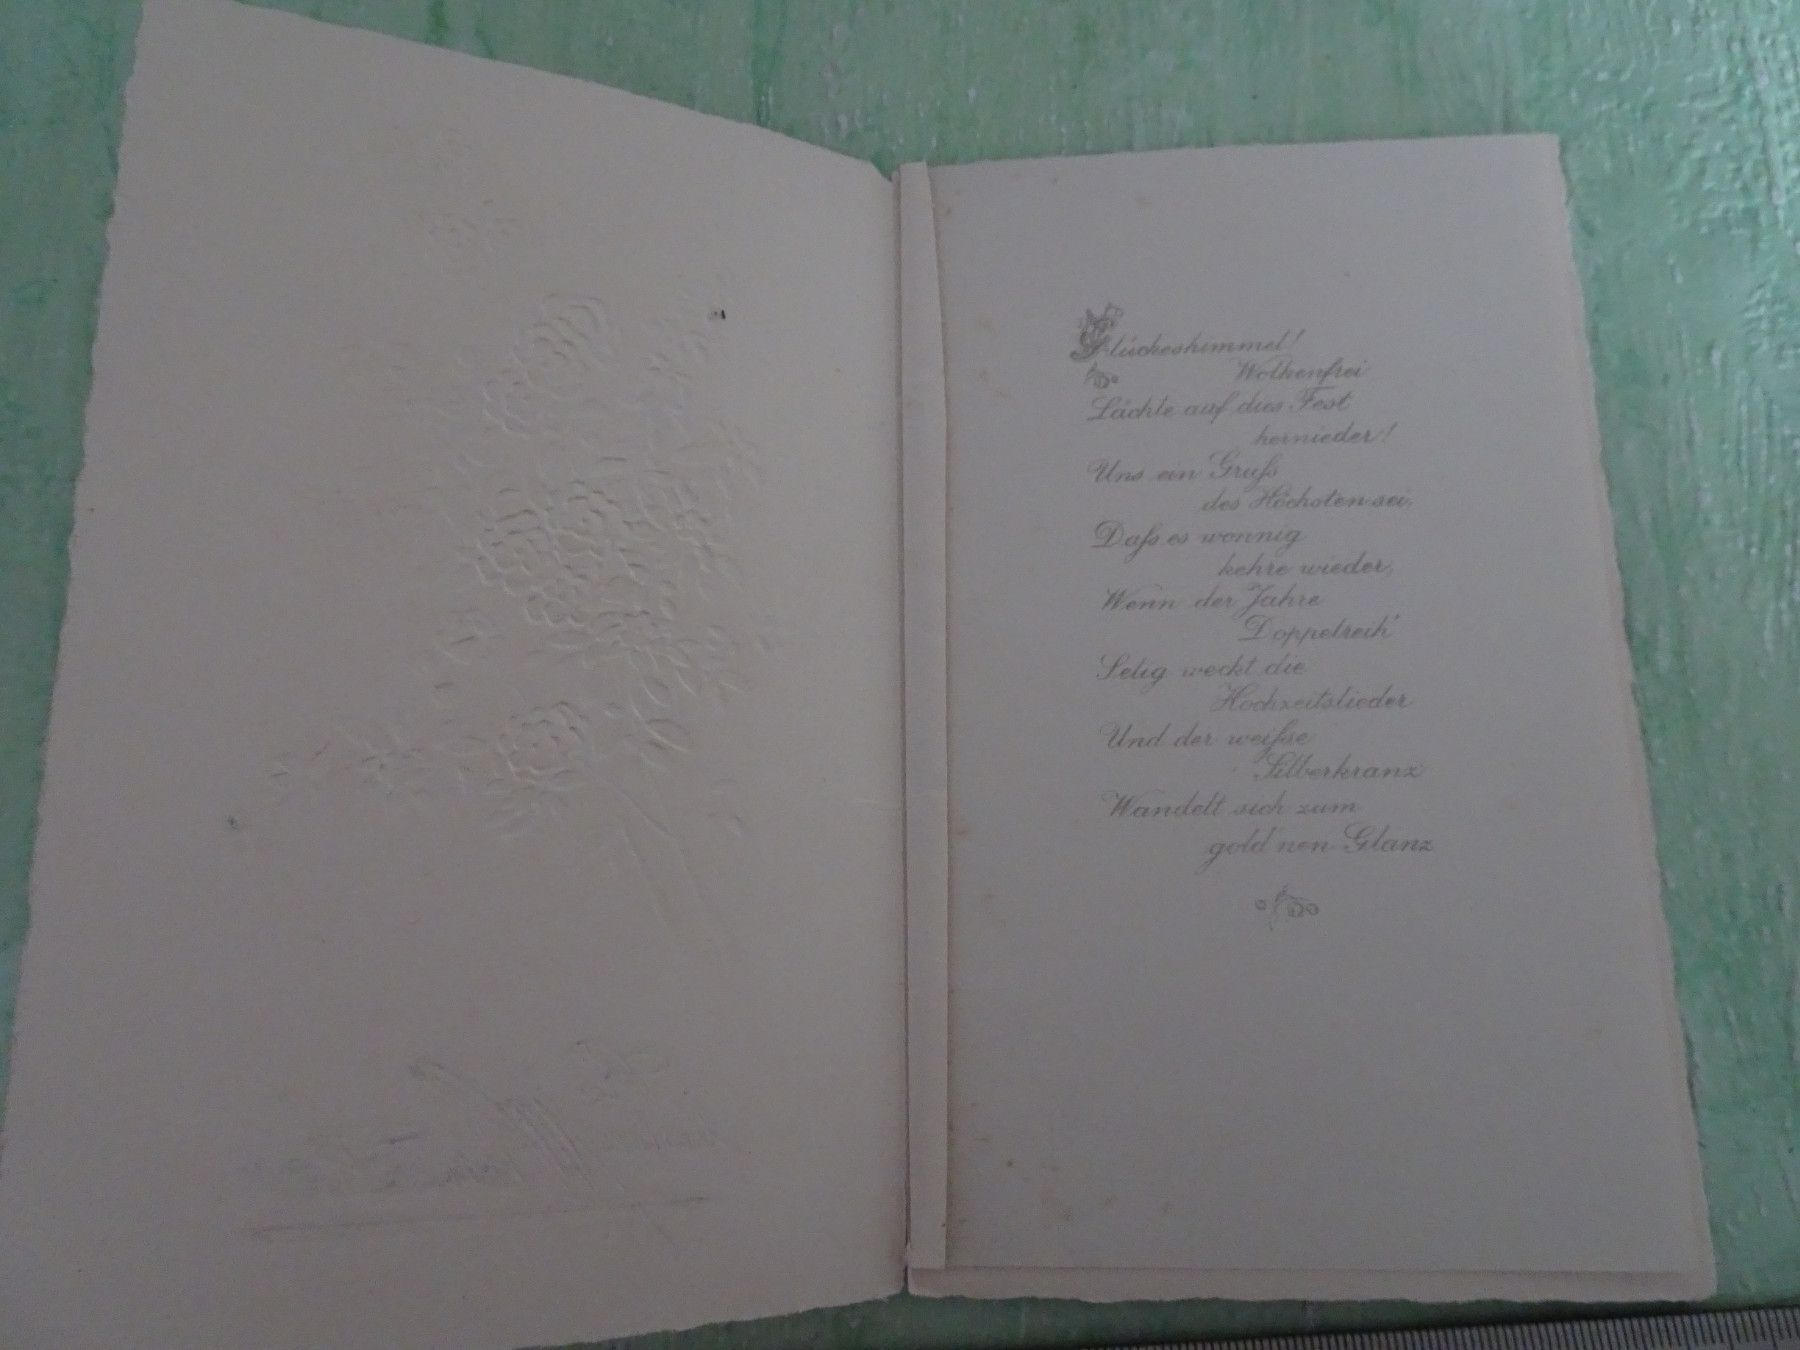 Glückeshimmel!
Wolkenfrei
Lächle auf dies Fest
hernieder!
Uns ein Gruß
des Höchsten sei,
Daß es wonnig
kehre wieder,
Wenn der Jahre
Doppelreih'
Selig weckt die
Hochzeitslieder
Und der weiße
Silberkranz
Wandelt sich zum
gold'nen Glanz